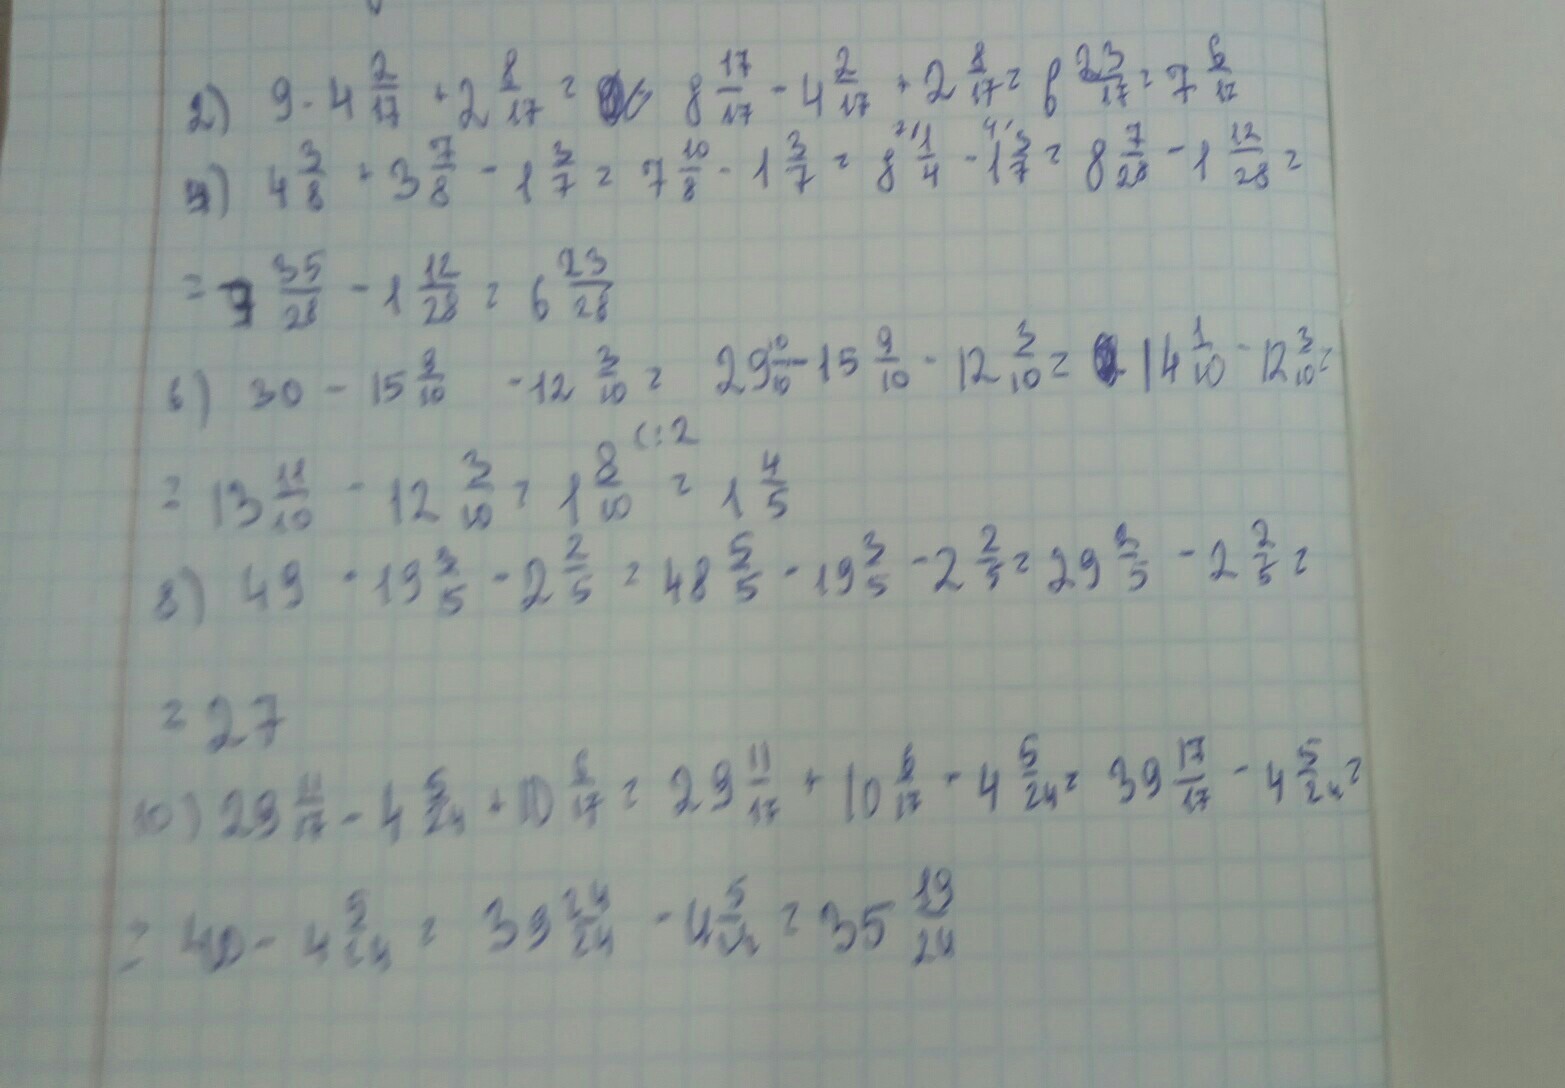 2) 9 - 4 2/17 + 2 8/17 = 8 17/17 - 4 2/17 + 2 8/17 = 6 23/17 = 7 6/17
4) 4 3/8 + 3 7/8 - 1 3/7 = 7 10/8 - 1 3/7 = 8 1/4 - 1 3/7 = 8 7/28 - 1 12/28 =
= 7 35/28 - 1 12/28 = 6 23/28
6) 30 - 15 9/10 - 12 3/10 = 29 10/10 - 15 9/10 - 12 3/10 = 14 1/10 - 12 3/10 =
= 13 11/10 - 12 3/10 = 1 8/10 (:2 = 1 4/5
8) 49 - 19 3/5 - 2 2/5 = 48 5/5 - 19 3/5 - 2 2/5 = 29 2/5 - 2 2/5 =
= 27
10) 29 11/17 - 4 5/24 + 10 6/17 = 29 11/17 + 10 6/17 - 4 5/24 = 39 17/17 - 4 5/24 =
= 40 - 4 5/24 = 39 24/24 - 4 5/24 = 35 19/24